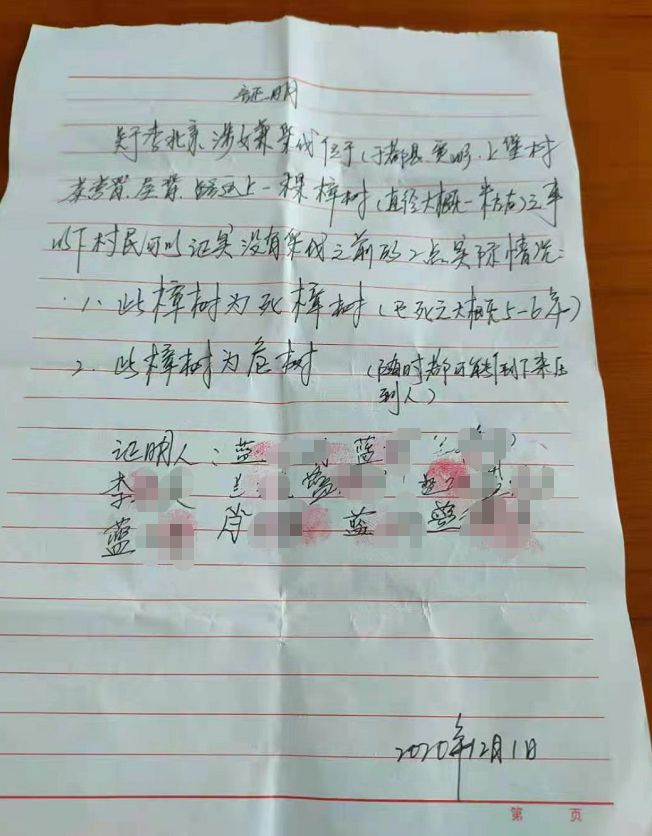 证明
关于李北京涉嫌采伐位于(于都县贡江上堡村
李屋背路边上一棵樟树(直径大概一米左右)之事
以下村民可以证实没有采伐之前的2点实际情况:
1、此樟树为死樟树(已死之大概5-6年)
2、此樟树为危树 (随时都可能倒下来压
到人)
证明人:蓝 蓝
李
蓝 肖 蓝
2020年12月1日
第 页